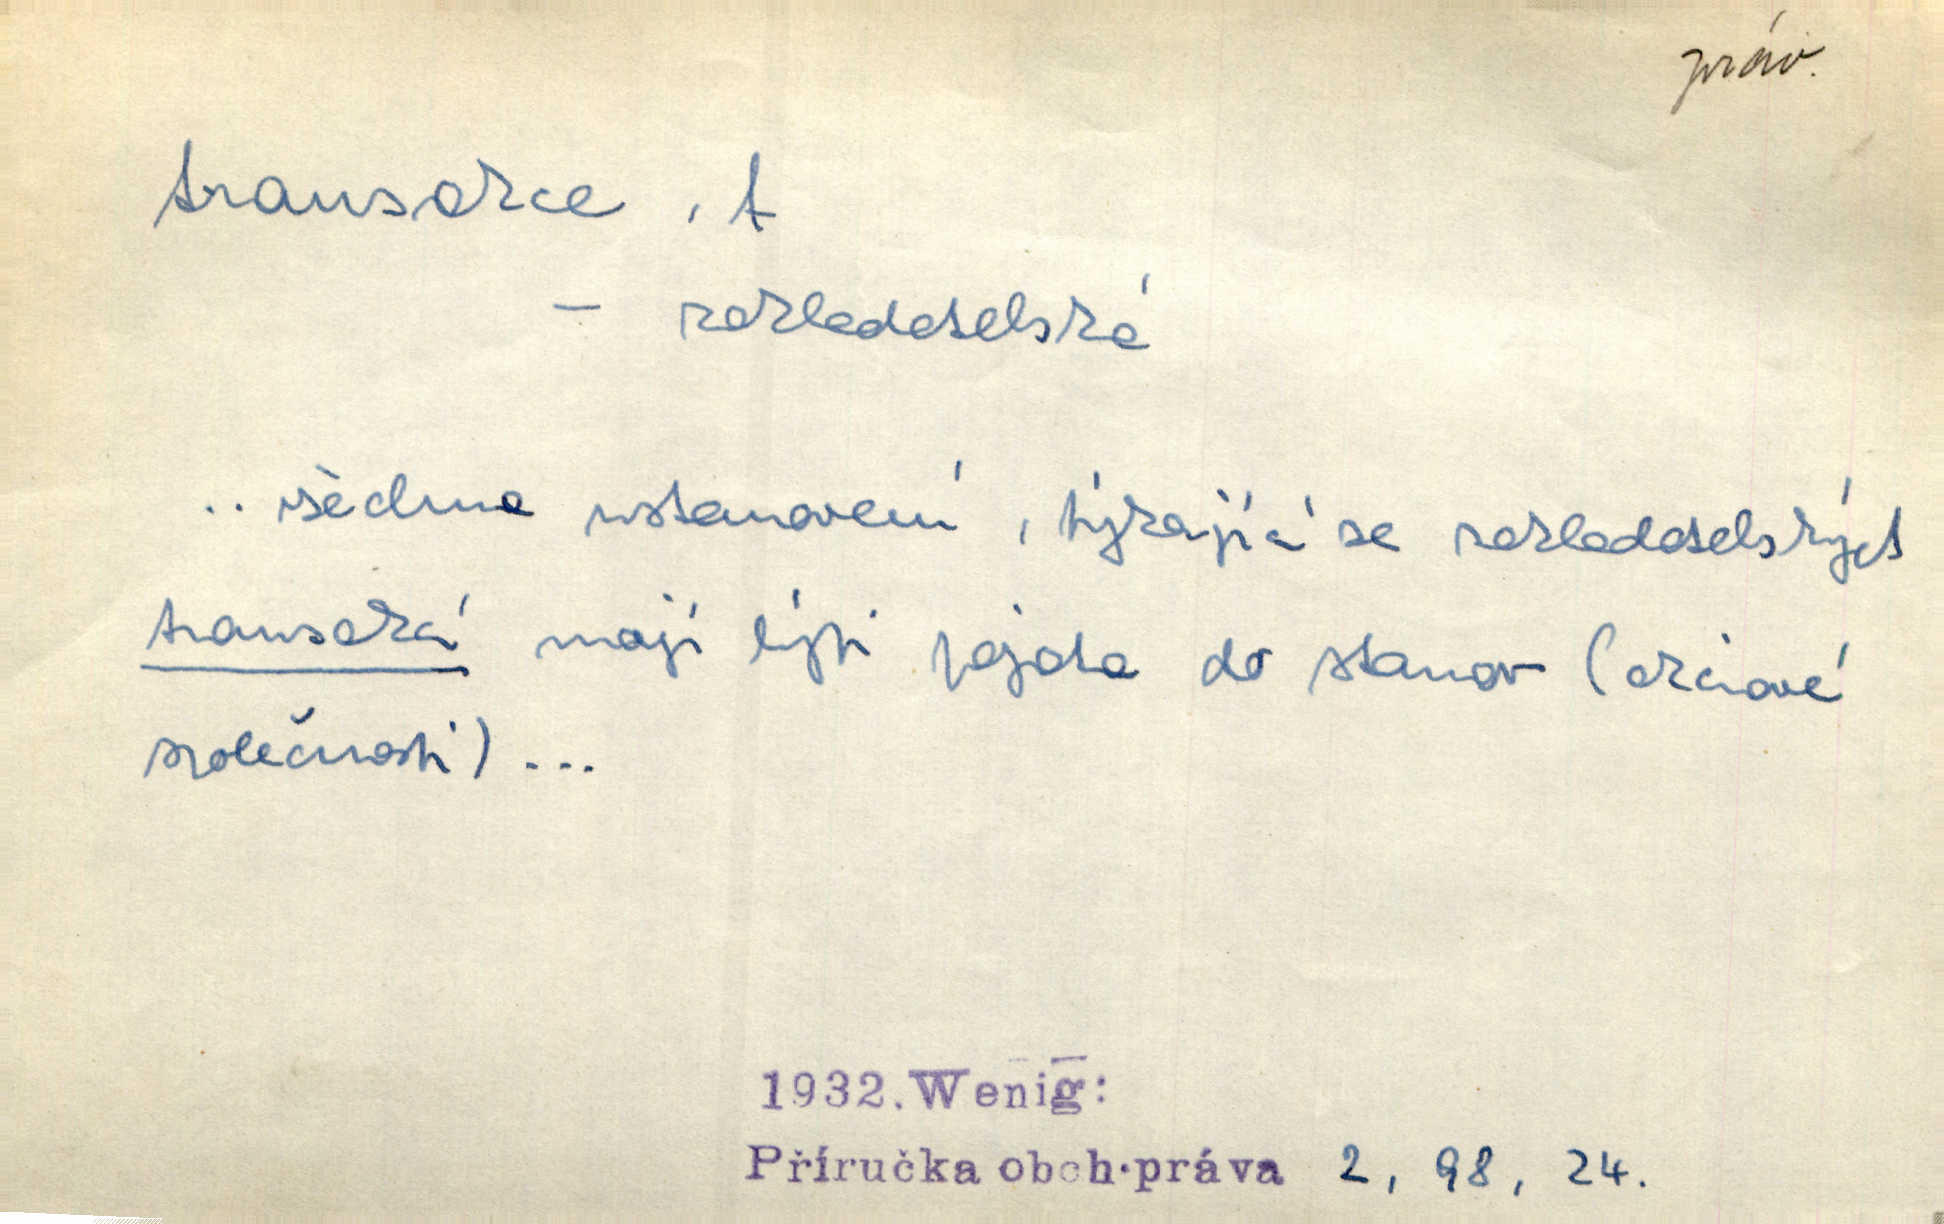 práv.
transakce, f
– zakladatelská
.. všechna ustanovení, týkající se zakladatelských
transakcí mají býti pojata do stanov (akciové
společnosti) ...
1932. Wenig:
Příručka obch. práva 2, 98, 24.